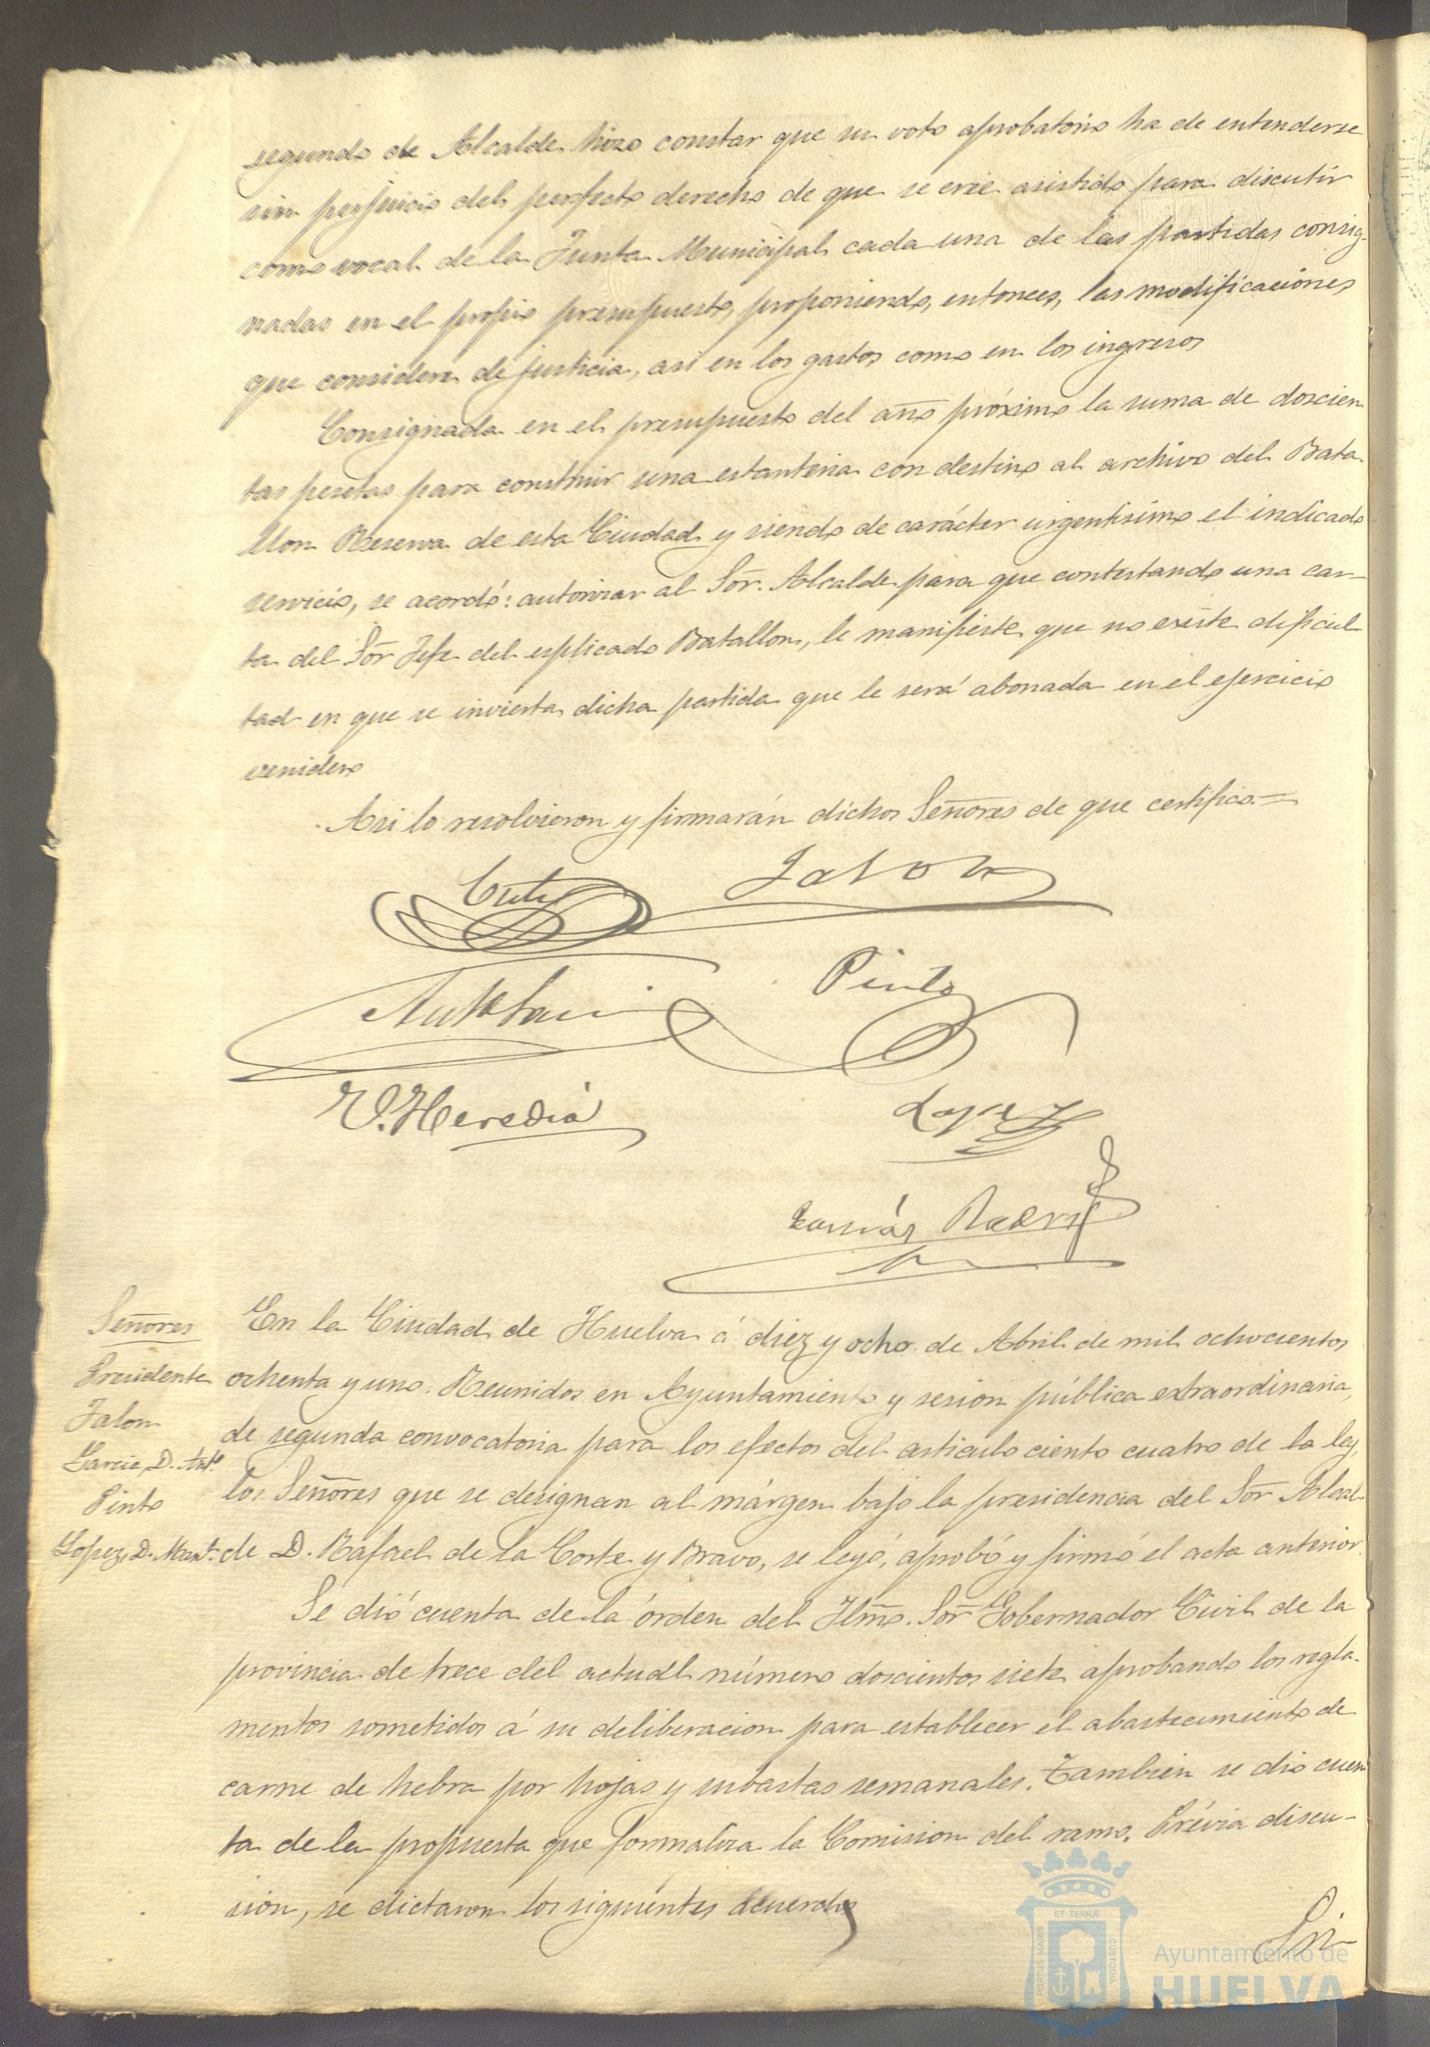 segundo de Alcalde hizo constar que su voto aprobatorio ha de entenderse
sin perjuicio del perfecto derecho de que se cree asistido para discutir
como vocal de la Junta Municipal cada una de las partidas consig-
nadas en el propio presupuesto, proponiendo, entonces, las modificaciones
que considere de justicia, asi en los gastos como en los ingresos
Consignada en el presupuesto del año próximo la suma de doscien
tas pesetas para construir una estanteria con destino al archivo del Bata
llon Reserva de esta Ciudad y siendo de carácter urgentisimo el indicado
servicio, se acordó: autorizar al Sor. Alcalde para que contestando una car-
ta del Sor Jefe del esplicado Batallon, le manifieste que no existe dificul
tad en que se invierta dicha partida que le será abonada en el ejercicio
venidero
Asi lo resolvieron y firmarán dichos Señores de que certifico.=
Jalon
Pinto
Heredia
Lopez
Tomás
Señores
Presidente
Jalon
Garcia, D. Antº
Pinto
Lopez, D. Manl.
En la Ciudad de Huelva á diez y ocho de Abril de mil ochocientos
ochenta y uno. Reunidos en Ayuntamiento y sesion pública extraordinaria,
de segunda convocatoria para los efectos del articulo ciento cuatro de la ley,
los Señores que se designan al márgen bajo la presidencia del Sor Alcal-
de D. Rafael de la Corte y Bravo, se leyó, aprobó y firmó el acta anterior.
Se dió cuenta de la órden del Ilmo. Sor Gobernador Civil de la
provincia de trece del actual número doscientos siete aprobando los regla-
mentos sometidos á su deliberacion para establecer el abastecimiento de
carne de hebra por hojas y subastas semanales. Tambien se dio cuen
ta de la propuesta que formaliza la Comision del ramo. Prévia discu-
sion, se dictaron los siguientes acuerdos
Ayuntamiento de
HUELVA
PORTUS MARIS
ET TERRÆ
CUSTODIA